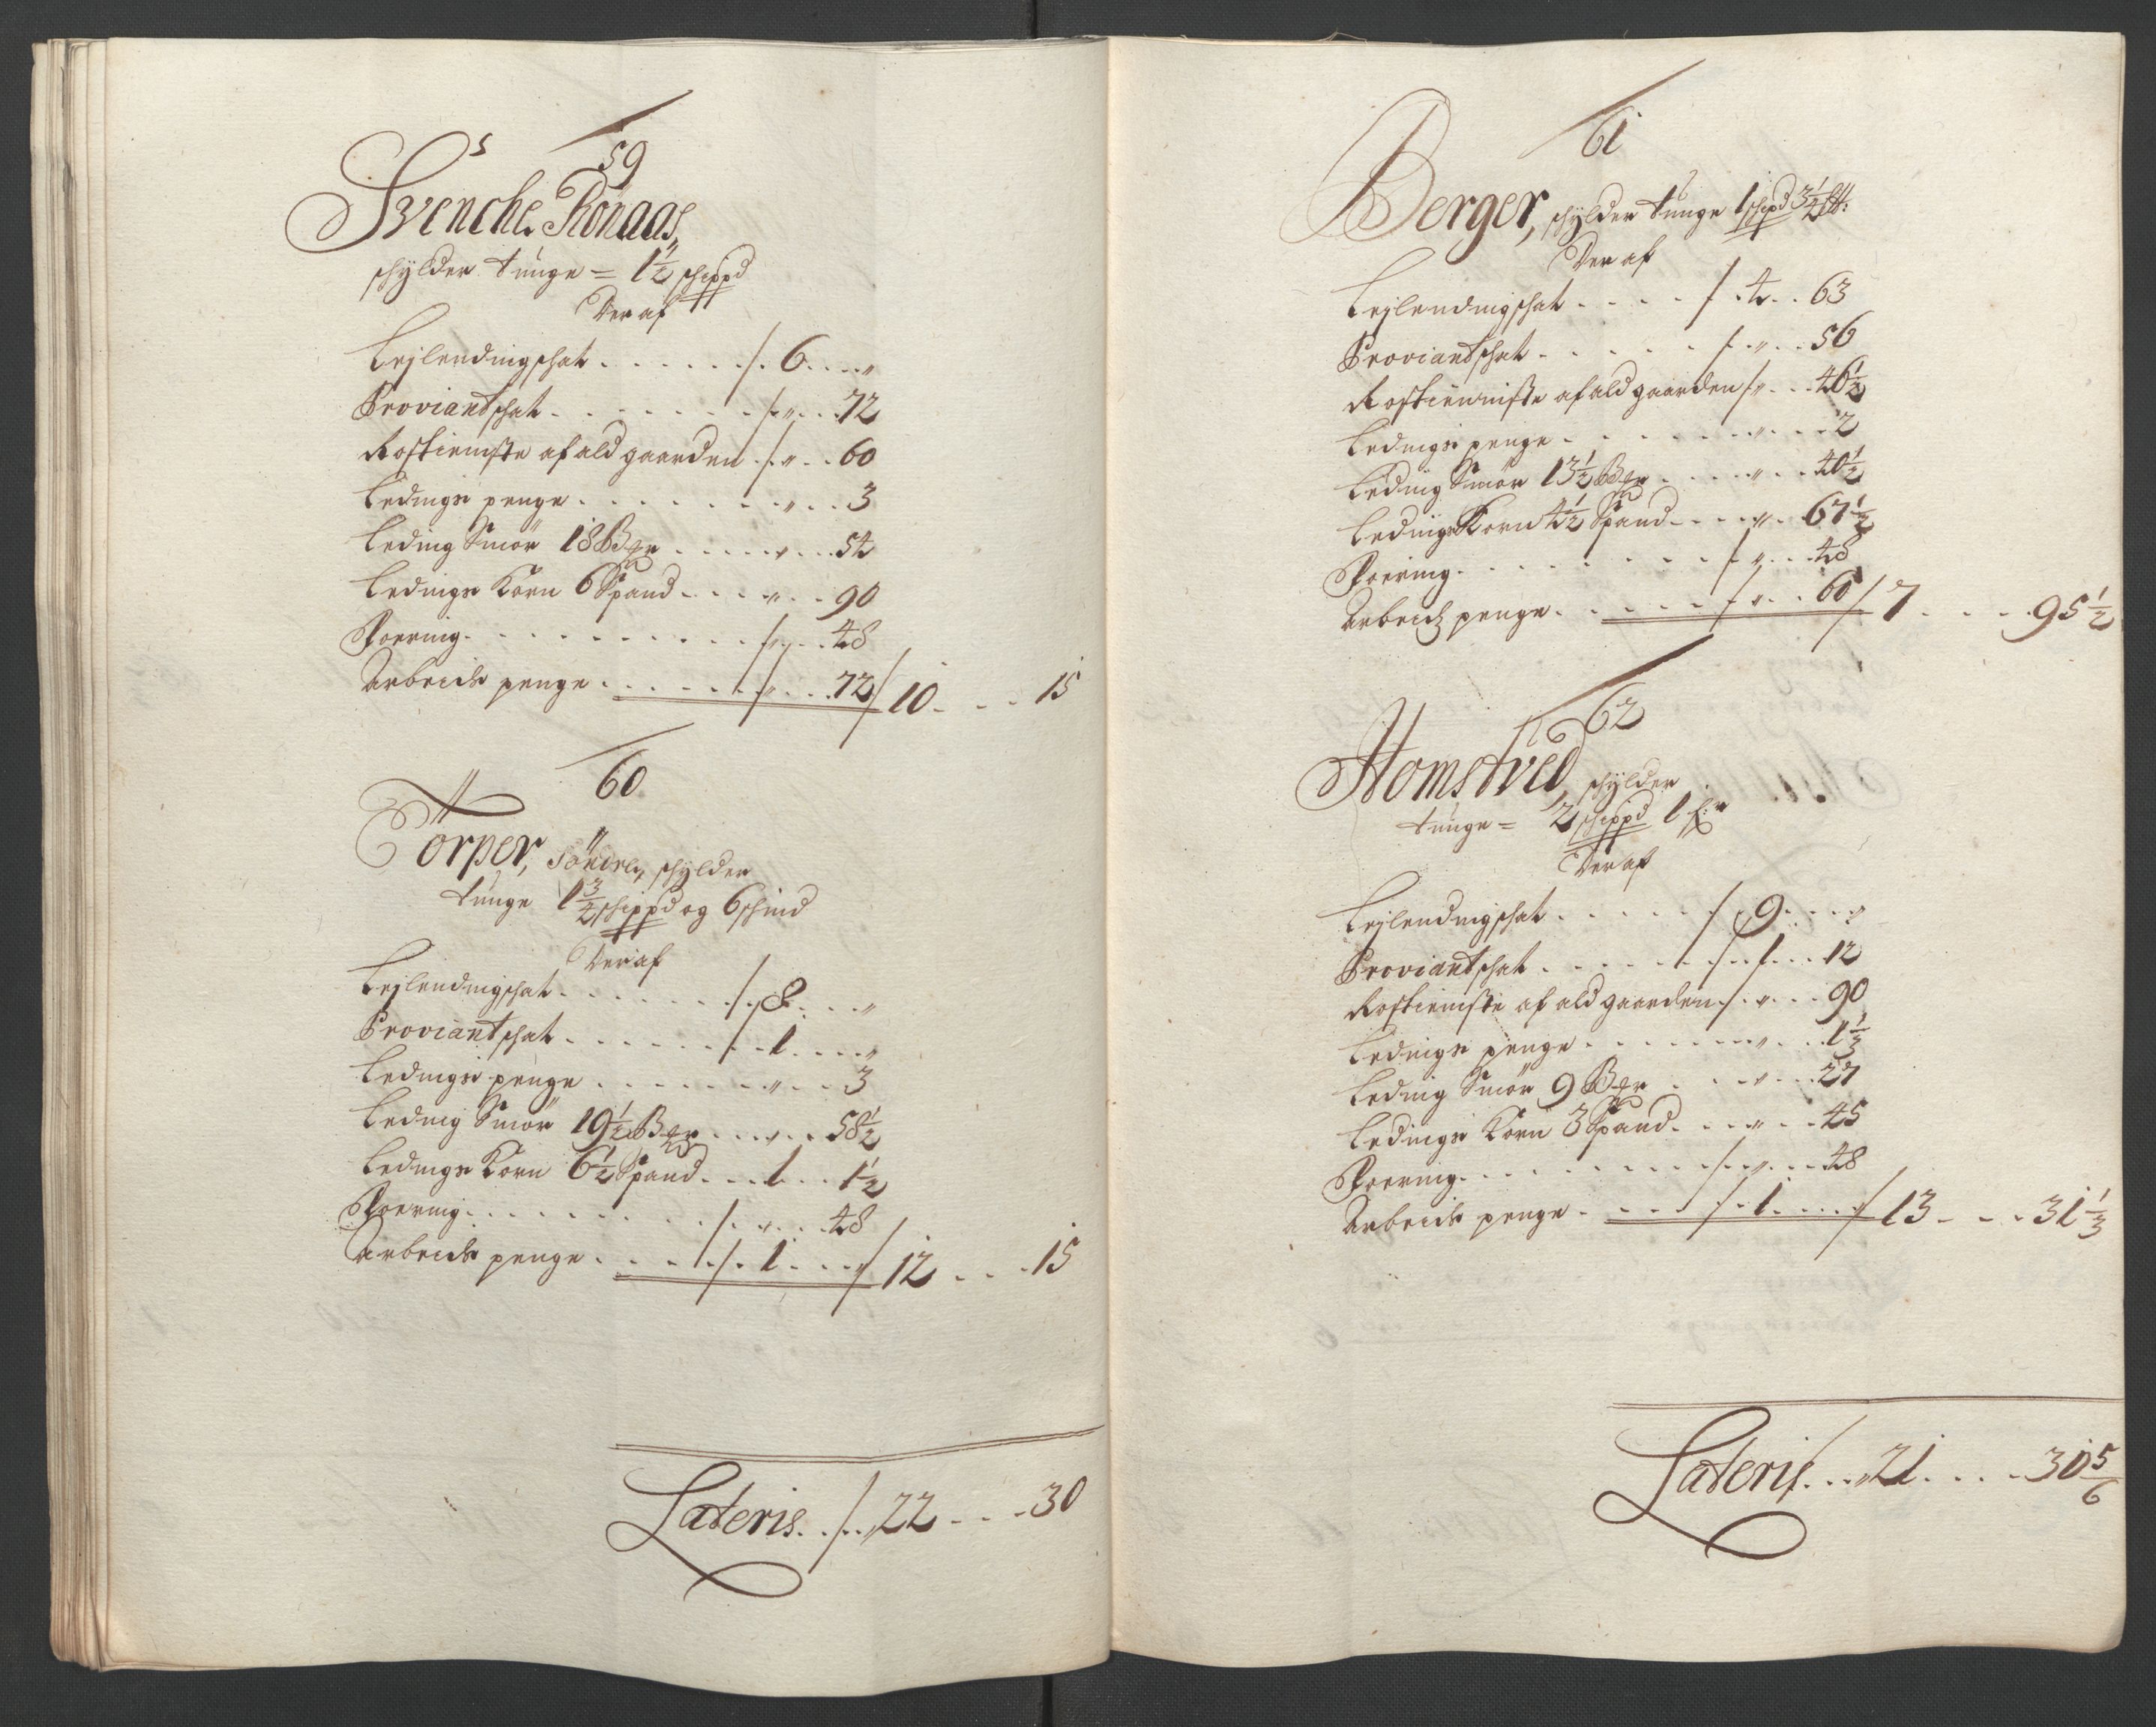 59
Svenche Rönaas,
schylder tunge = 1½ schippd
Der af
Lejlendingschat . . . . . . /. 6 . . . "
Proviantschat . . . . . . . /. " . . . 72
Rostieniste af ald gaarden . /. " . . 60
Ledings penge . . . . . . . " . . . 3
Leding Smör 18 Bger . . . . . " . . . 54
Ledings Korn 6 Spand . . . " . . . 90
Foering . . . . . . . . . . /. " . . . 48
Arbeids penge . . . . . . /. " . . . 72 / 10 . . . 15
60
Törper, Söndre, schylder
tunge 1¾ schippd og 6 schind
Der af
Lejlendingschat . . . . . . . /. 8 . . . "
Proviantschat . . . . . . . /. 1 . . . "
Ledings penge . . . . . . . " . . . 3
Leding Smör 19½ Bger . . . " . . 58½
Ledings Korn 6½ Spand . . . 1 . . . 1½
Foering . . . . . . . . . /. " . . . 48
Arbeids penge . . . . . /. 1 . . . " / 12 . . . 15
Lateris . . /. . 22 . . . 30
61
Berger, schylder tunge 1 schipd 3¼ Lb:
Der af
Lejlendingschat . . . . . / . 4 . . 63
Proviantschat . . . . . . /. " . . 56
Rostienniste af ald gaarden /. " . . . 46½
Ledings penge . . . . . . . " . . . 2
Leding Smör 13½ Bger . . . . " . . . 40½
Ledings Korn 4½ Spand . . . . " . . 67½
Foering . . . . . . . . . /. " . . . 48
Arbeids penge . . . . . . /. " . . . 60 / 7 . . . . 95½
62
Homstved, schylder
tunge = 2 schippd 1 f:r
Der af
Lejlendingschat . . . . . . / . 9 . . . "
Proviantschat . . . . . . /. 1 . . . 12
Rostieniste af ald gaarden . /. " . . . 90
Ledings penge . . . . . . . " . . . 1⅓
Leding Smör 9 Bger . . . " . . . 27
Ledings Korn 3 Spand . . . " . . . 45
Foering . . . . . . . . . /. " . . . 48
Arbeids penge . . . . . /. 1 . . . " / 13 . . . 31⅓
Lateris . . . 21 . . . . 30⅚